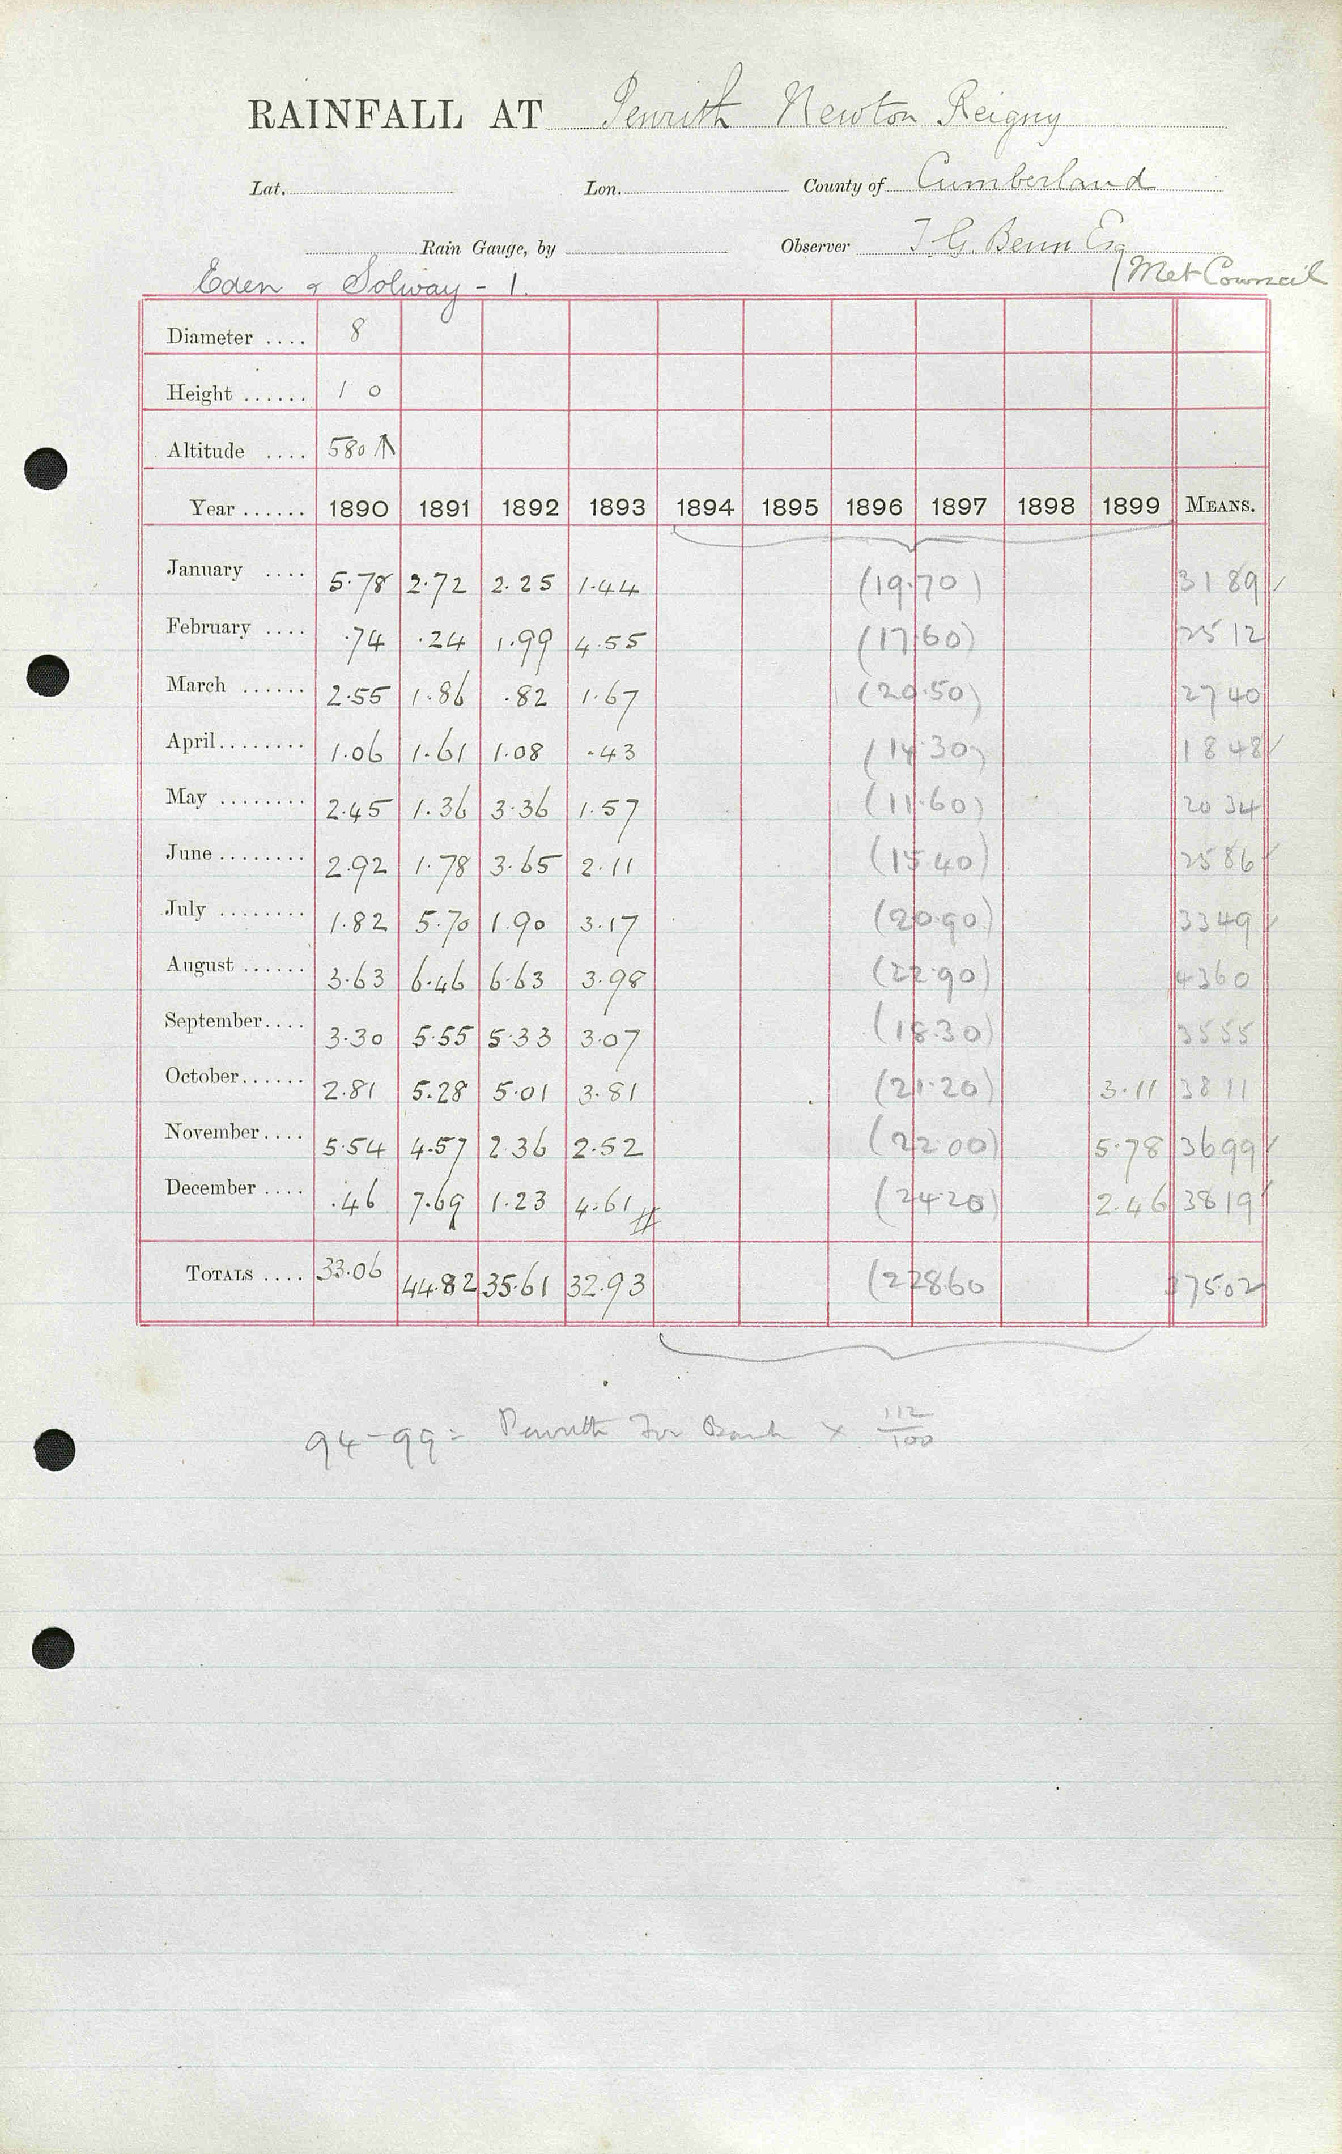 RAINFALL AT Penrith Newton Reigny
Lat. Lon. County of Cumberland
Rain Gauge, by Observer T G. Benn Esq
Eden & Solway - 1. / Met Council
Diameter .... 8
Height ...... 1 0
Altitude .... 580 ↑
Year ...... 1890 1891 1892 1893 1894 1895 1896 1897 1898 1899 MEANS.
January .... 5.78 2.72 2.25 1.44 (19.70) 3189 ✓
February .... .74 .24 1.99 4.55 (17.60) 2512
March ...... 2.55 1.86 .82 1.67 (20.50) 2740
April ........ 1.06 1.61 1.08 .43 (14.30) 1848 ✓
May ........ 2.45 1.36 3.36 1.57 (11.60) 2034
June ........ 2.92 1.78 3.65 2.11 (15.40) 2586 ✓
July ........ 1.82 5.70 1.90 3.17 (20.90) 3349 ✓
August ...... 3.63 6.46 6.63 3.98 (22.90) 4360
September .... 3.30 5.55 5.33 3.07 (18.30) 3555
October ...... 2.81 5.28 5.01 3.81 (21.20) 3.11 3811
November .... 5.54 4.57 2.36 2.52 (22.00) 5.78 3699 ✓
December .... .46 7.69 1.23 4.61 # (24.20) 2.46 3819 ✓
TOTALS .... 33.06 44.82 35.61 32.93 (22860 37502
94-99 = Penrith Bank × 112/100